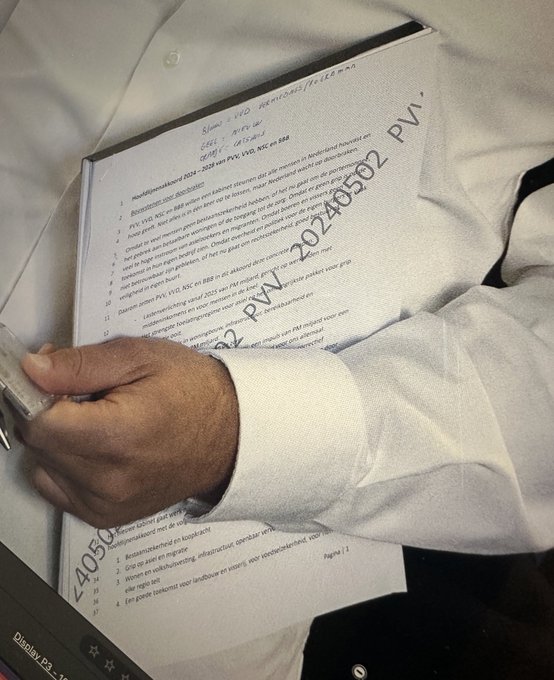 BLAUW = VVD VERKIEZINGSPROGRAMMA
GEEL = NIEUW
ORANJE = CATSHUIS
1 Hoofdlijnenakkoord 2024 – 2028 van PVV, VVD, NSC en BBB
2 Bouwstenen voor doorbraken
3 PVV, VVD, NSC en BBB willen een kabinet steunen dat alle mensen in Nederland houvast en
4 hoop geeft. Niet alles is in één keer op te lossen, maar Nederland wacht op doorbraken.
5 Omdat te veel mensen geen bestaanszekerheid hebben, of het nu gaat om de portemonnee,
6 het gebrek aan betaalbare woningen of de toegang tot de zorg. Omdat er geen grip
7 veel te hoge instroom van asielzoekers en migranten. Omdat boeren en vissers
8 toekomst in hun eigen bedrijf zien. Omdat overheid en politiek voor de eigen
9 niet betrouwbaar zijn gebleken, of het nu gaat om rechtszekerheid, goed
10 veiligheid in eigen buurt.
11 Daarom zetten PVV, VVD, NSC en BBB in dit akkoord deze concrete
12 - Lastenverlichting vanaf 2025 van PM miljard, gericht op
middeninkomens en voor mensen in de knel
strengste toelatingsregime voor asiel en
pakket voor grip
ooit.
PM miljard
in woningbouw, infrastructuur, bereikbaarheid en
een impuls van PM miljard voor een
voor ons allemaal.
kabinet gaat
hoofdlijnenakkoord met de
1. Bestaanszekerheid en koopkracht
2. Grip op asiel en migratie
34 3. Wonen en volkshuisvesting, infrastructuur, openbaar
35 elke regio telt
36 4. Een goede toekomst voor landbouw en visserij, voor voedselzekerheid, voor
37
Pagina | 1
PVV 20240502 PVV
<40502
Display P3 - 16